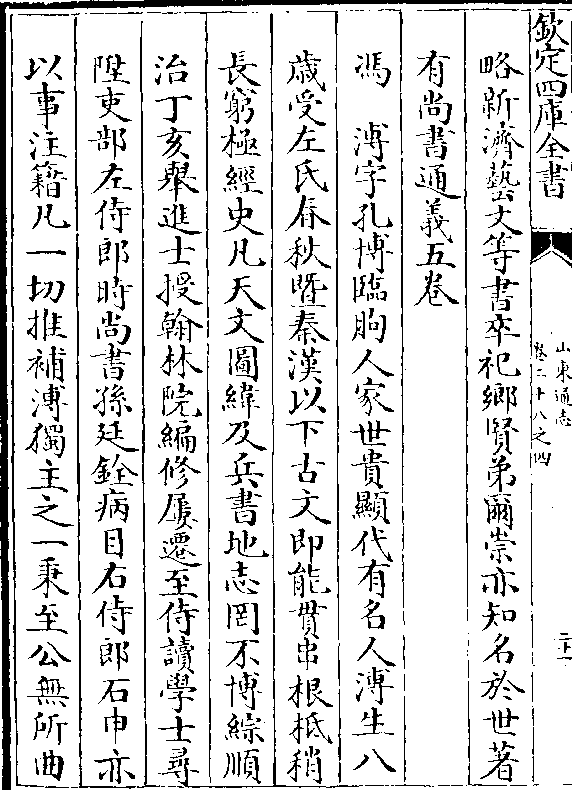 欽定四庫全書
山東通志
卷二十八之四
二十一
略新濟藝文等書卒祀鄉賢弟爾崇亦知名於世著
有尚書通義五卷
馮　溥字孔博臨朐人家世貴顯代有名人溥生八
歳受左氏春秋暨秦漢以下古文即能貫串根柢稍
長窮極經史凡天文圖緯及兵書地志罔不博綜順
治丁亥舉進士授翰林院編修屢遷至侍讀學士尋
陞吏部左侍郎時尚書孫廷銓病目右侍郎石申亦
以事注籍凡一切推補溥獨主之一秉至公無所曲